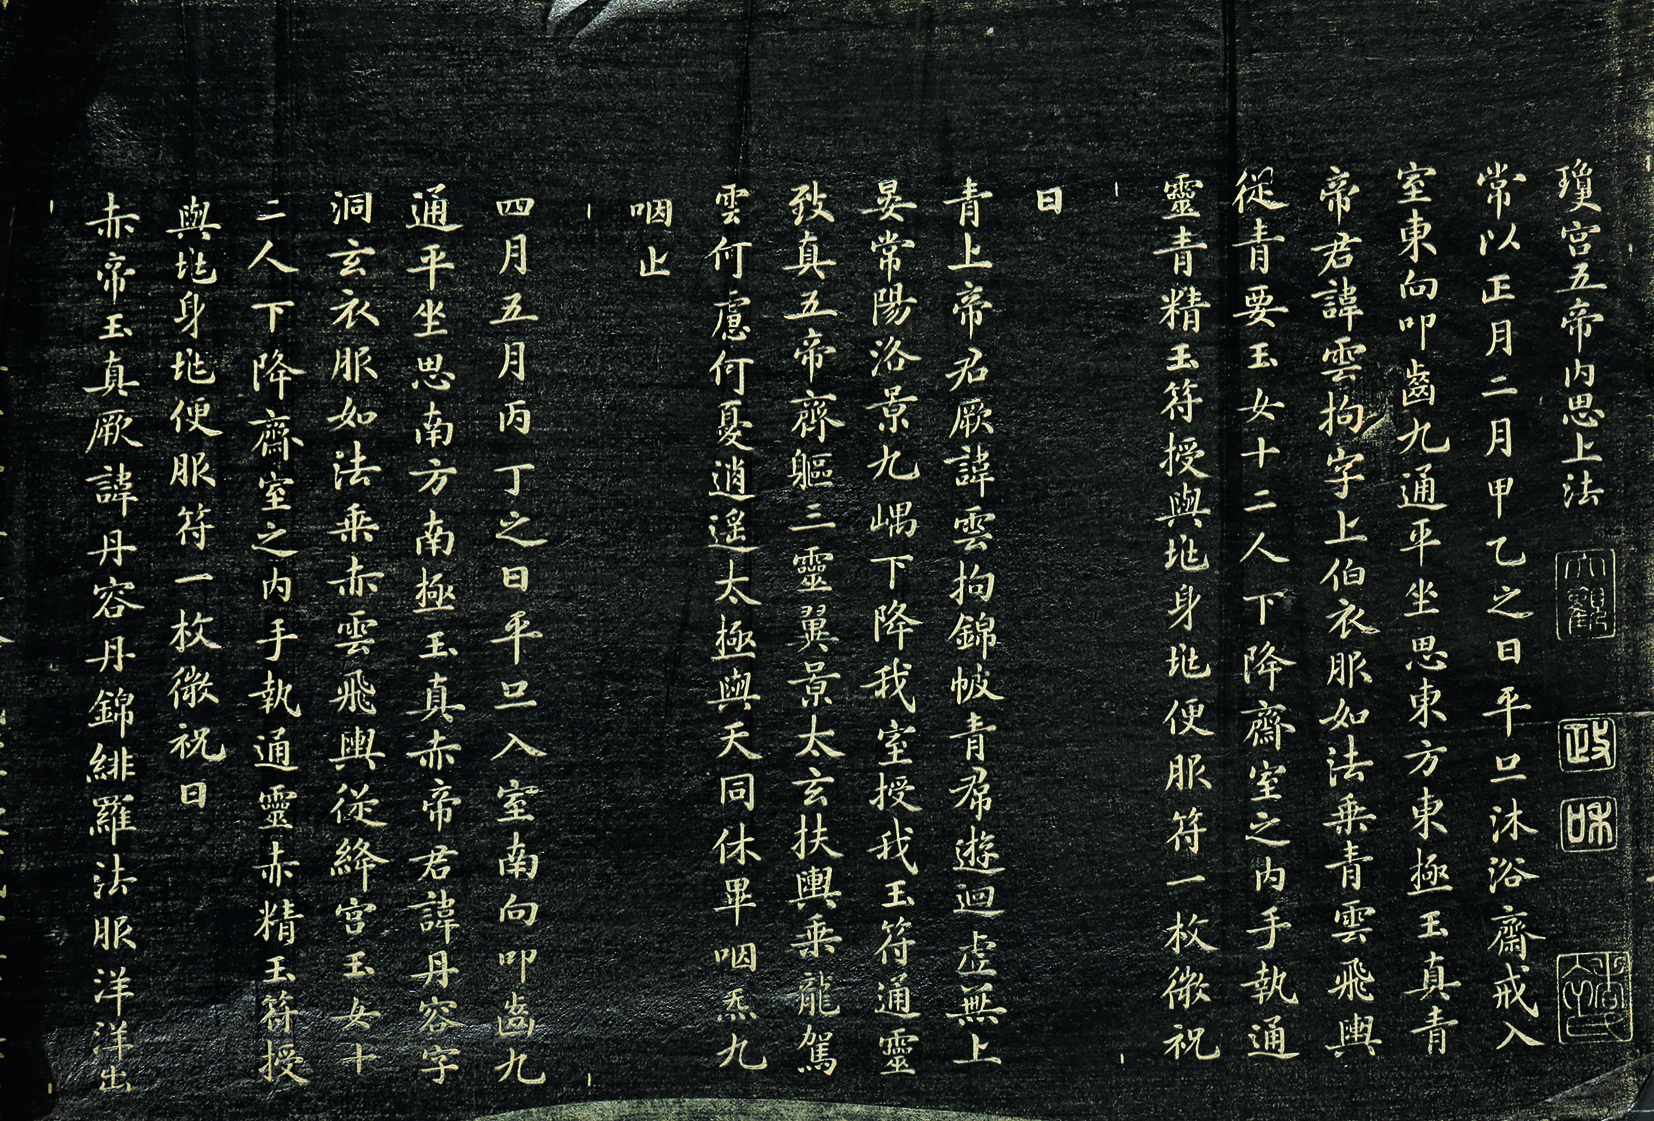 瓊宮五帝內思上法
大觀
政
和
常以正月二月甲乙之日平旦沐浴齋戒入
室東向叩齒九通平坐思東方東極玉真青
帝君諱雲拘字上伯衣服如法乗青雲飛輿
從青要玉女十二人下降齋室之内手執通
靈青精玉符授與兆身兆便服符一枚微祝
曰
青上帝君厥諱雲拘錦帔青帬遊迴虛無上
晏常陽洛景九嵎下降我室授我玉符通靈
致真五帝齊軀三靈翼景太玄扶輿乗龍駕
雲何慮何憂逍遙太極與天同休畢咽炁九
咽止
四月五月丙丁之日平旦入室南向叩齒九
通平坐思南方南極玉真赤帝君諱丹容字
洞玄衣服如法乗赤雲飛輿從絳宮玉女十
二人下降齋室之内手執通靈赤精玉符授
與兆身兆便服符一枚微祝曰
赤帝玉真厥諱丹容丹錦緋羅法服洋洋出